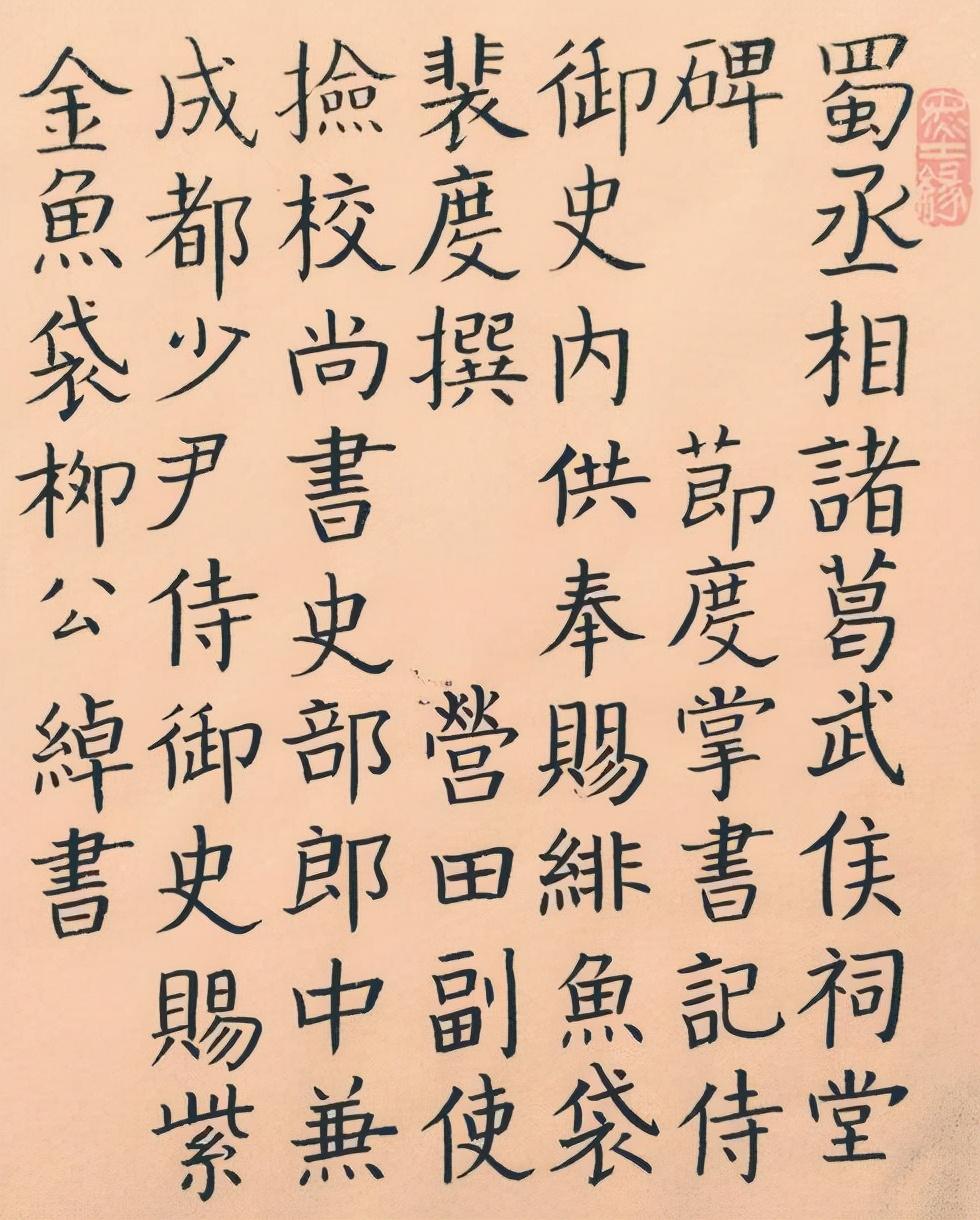 蜀丞相諸葛武侯祠堂
碑 節度掌書記侍
御史内供奉賜緋魚袋
裴度撰 營田副使
撿校尚書史部郎中兼
成都少尹侍御史賜紫
金魚袋柳公綽書